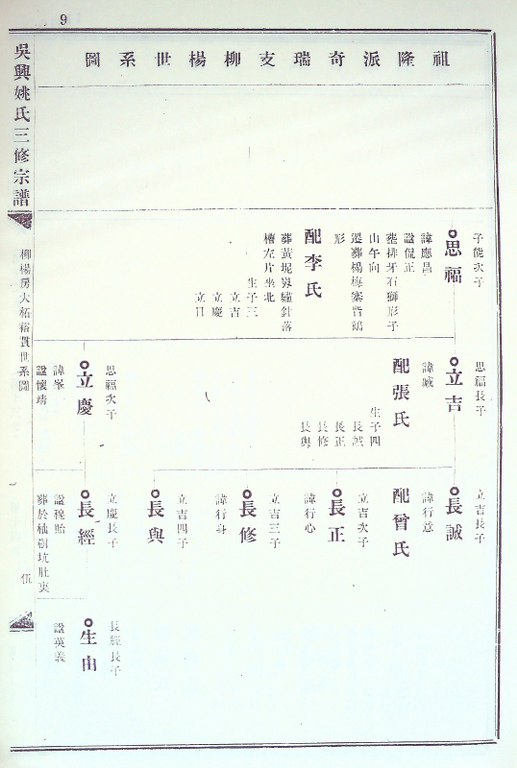 9
祖隆派奇瑞支柳楊世系圖
吳興姚氏三修宗譜
柳楊房大柘裕貫世系圖
伍
子能次子
思福
諱應昌
諡侃正
葬排牙石獅形子
山午向
遷葬楊梅寨
形
配李氏
生子三
立吉
立慶
立日
思福長子
立吉
諱
配張氏
生子四
長誠
長正
長修
長與
思福次子
立慶
諱峯
諡懷靖
立吉長子
長誠
諱行意
配曾氏
立吉次子
長正
諱行心
立吉三子
長修
諱行身
立吉四子
長與
立慶長子
長經
諡穆貽
長經長子
生由
諡英義